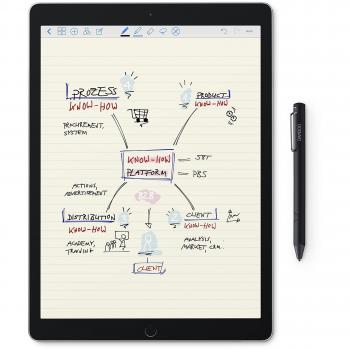 PROZESS
KNOW-HOW
PROCUREMENT,
SYSTEM
PRODUCT
KNOW-HOW
KNOW-HOW
PLATFORM
ACTIONS,
ADVERTISEMENT
B2B
DISTRIBUTION
KNOW-HOW
ACADEMY,
TRAINING
CLIENT
KNOW-HOW
ANALYSIS,
MARKET, CRM.
CLIENT
wacom